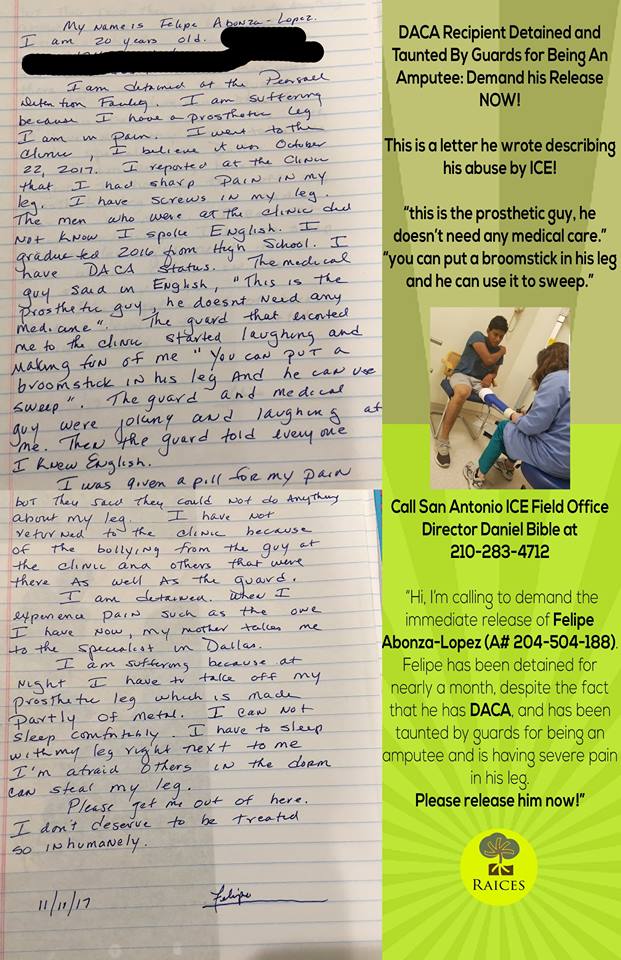 My name is Felipe Abonza-Lopez.
I am 20 years old.
I am detained at the Pearsall
Detention Facility. I am suffering
because I have a prosthetic leg
I am in pain. I went to the
clinic, I believe it was October
22, 2017. I reported at the clinic
that I had sharp pain in my
leg. I have screws in my leg.
The men who were at the clinic did
not know I spoke English. I
graduated 2016 from High School. I
have DACA status. The medical
guy said in English, "This is the
prosthetic guy, he doesnt need any
medicine". The guard that escorted
me to the clinic started laughing and
making fun of me "you can put a
broomstick in his leg and he can use
sweep". The guard and medical
guy were joking and laughing at
me. Then the guard told everyone
I knew English.
I was given a pill for my pain
but they said they could not do anything
about my leg. I have not
returned to the clinic because
of the bollying from the guy at
the clinic and others that were
there as well as the guard.
I am detained. When I
experience pain such as the one
I have now, my mother takes me
to the specialist in Dallas.
I am suffering because at
night I have to take off my
prosthetic leg which is made
partly of metal. I can not
sleep comfortably. I have to sleep
with my leg right next to me
I'm afraid others in the dorm
can steal my leg.
Please get me out of here.
I don't deserve to be treated
so inhumanely.
11/11/17
Felipe
DACA Recipient Detained and
Taunted By Guards for Being An
Amputee: Demand his Release
NOW!
This is a letter he wrote describing
his abuse by ICE!
"this is the prosthetic guy, he
doesn't need any medical care."
"you can put a broomstick in his leg
and he can use it to sweep."
Call San Antonio ICE Field Office
Director Daniel Bible at
210-283-4712
"Hi, I'm calling to demand the
immediate release of Felipe
Abonza-Lopez (A# 204-504-188).
Felipe has been detained for
nearly a month, despite the fact
that he has DACA, and has been
taunted by guards for being an
amputee and is having severe pain
in his leg.
Please release him now!"
RAICES